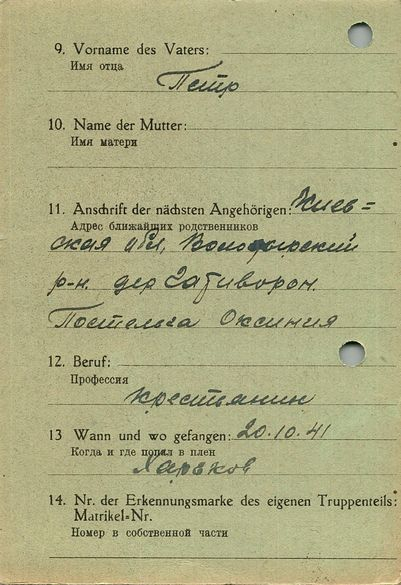 9. Vorname des Vaters:
Имя отца
Петр
10. Name der Mutter:
Имя матери
11. Anschrift der nächsten Angehörigen: Киев=
Адрес ближайших родственников
ская обл,
р-н. дер
Оксиния
12. Beruf:
Профессия
крестьянин
13 Wann und wo gefangen: 20.10.41
Когда и где попал в плен
Харьков
14. Nr. der Erkennungsmarke des eigenen Truppenteils:
Matrikel=Nr.
Номер в собственной части